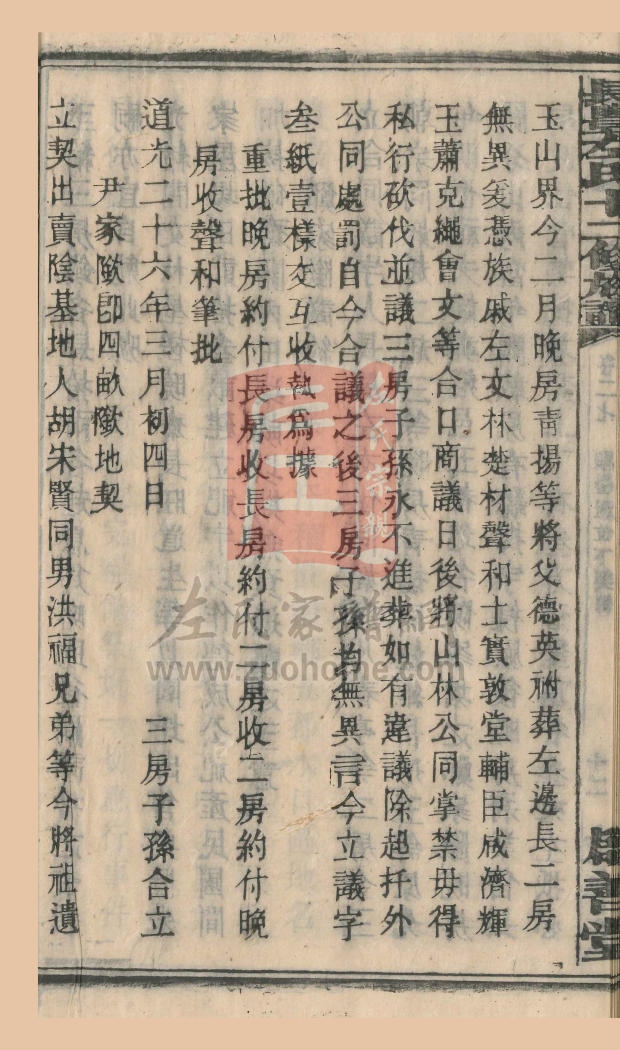 玉山界今二月晚房靑揚等將父德英祔葬左邊長二房
無異爰憑族戚左文林楚材聲和士實敦堂輔臣咸濟輝
玉蕭克繩會文等合口商議日後將山林公同掌禁毋得
私行砍伐並議三房子孫永不進葬如有違議除起扦外
公同處罰自今合議之後三房子孫若無異言今立議字
叁紙壹樣交互收執爲據
重批晚房約付長房收長房約付二房收二房約付晚
房收聲和筆批
道光二十六年三月初四日 三房子孫合立
尹家𡑞卽四畝𡑞地契
立契出賣陰基地人胡宋賢同男洪福兄弟等今將祖遺
左氏十二修族譜
善堂
左氏家譜網
www.zuohome.com